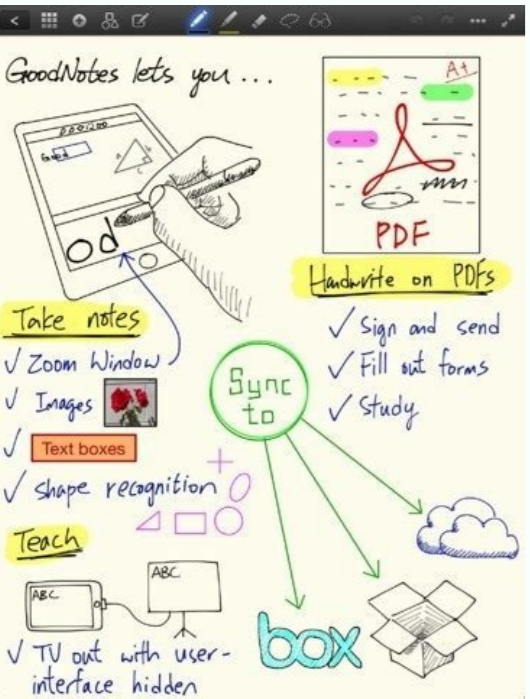 GoodNotes lets you ...
Good
od
A+
PDF
Handwrite on PDFs
✓ Sign and send
✓ Fill out forms
✓ Study
Take notes
✓ Zoom Window
✓ Images
✓ Text boxes
✓ shape recognition
Sync
to
Teach
ABC
ABC
✓ TV out with user-
interface hidden
box